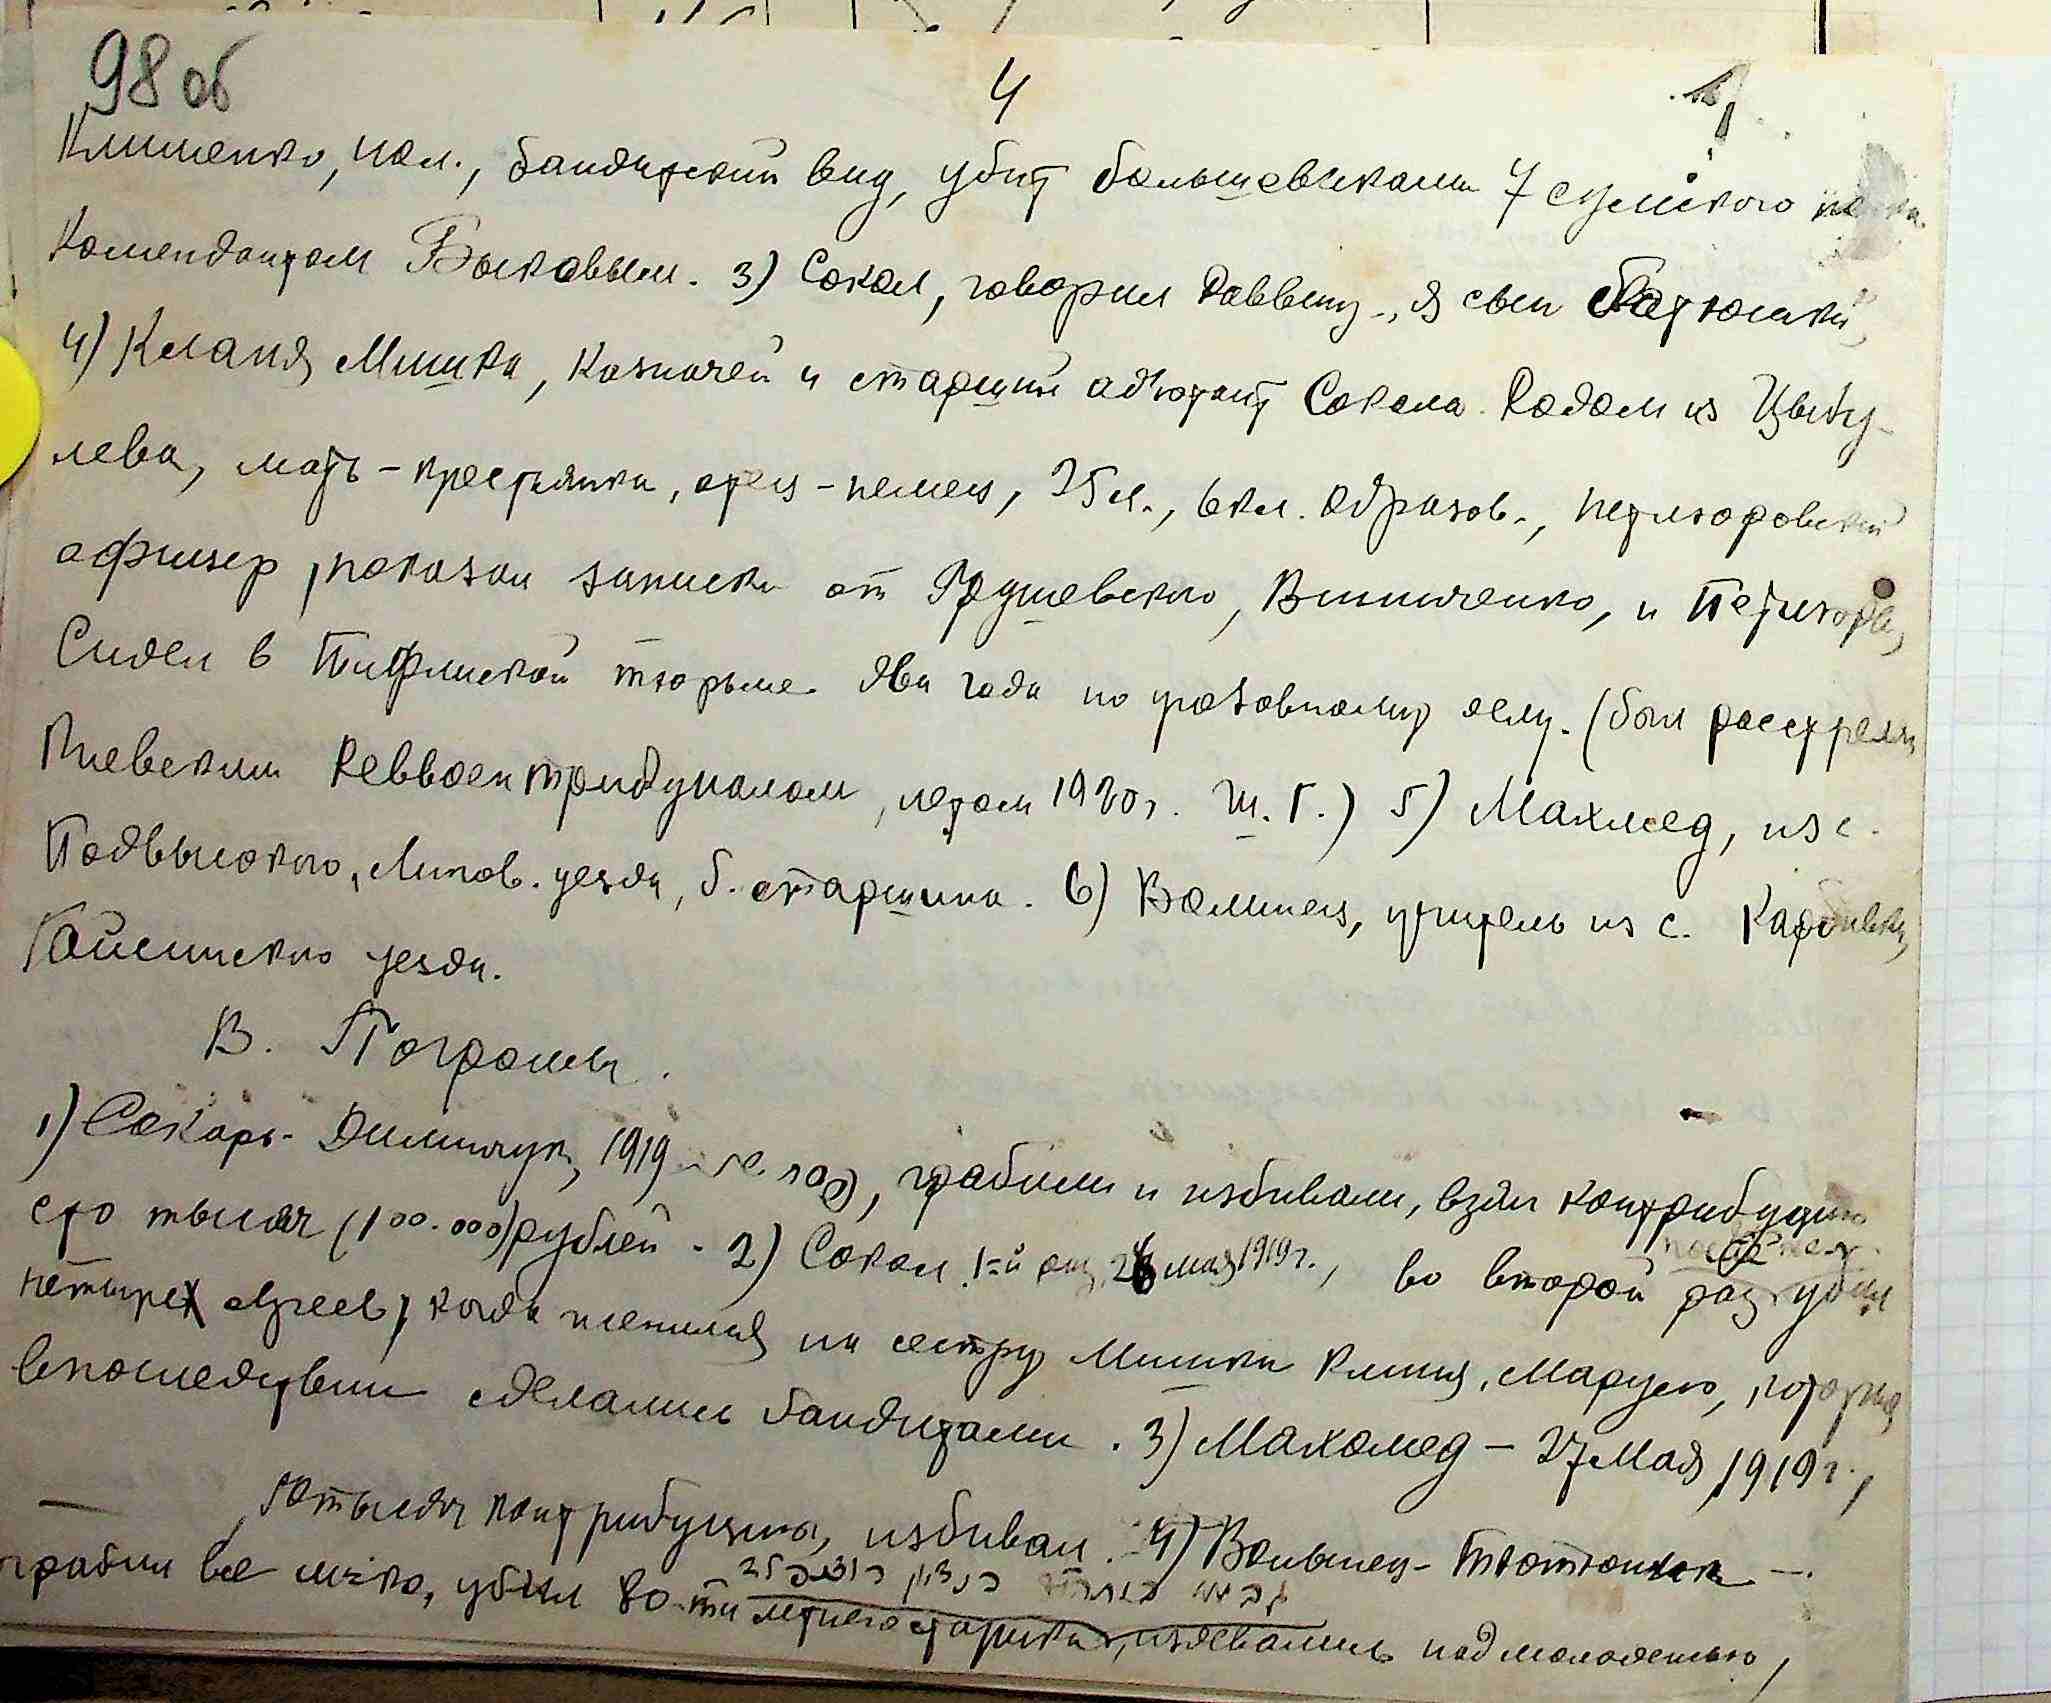 98 об
4
Клименко, пол., бандитский вид, убит большевиками 7 сумского полка
Комендантом Быковым. 3) Сокол, говорил раввину - я сын батюшки,
4) Кланя Мишка, Казначей и старший адъютант Сокола. Родом из Цыбу-
лева, мать - крестьянка, отец - немец, 25 л., 6 кл. образов., петлюровский
офицер, показал записки от Грушевского, Винниченко, и Петлюры,
Сидел в Тифлиской тюрьме два года по уголовному делу. (был расстрелян
Киевским Реввоентрибуналом, летом 1920 г. Ш. Г.) 5) Махмед, из с.
Подвысокого, Липов. уезда, б. старшина. 6) Волынец, учитель из с. Карбивки,
Гайсинского уезда.
В. Погромы.
1) Сокарь - Димитчук, 1919 год, грабили и избивали, взяли контрибуцию
сто тысяч (100.000) рублей. 2) Сокол 1-й раз, 26 мая 1919 г., во второй раз убил
четырех евреев, когда женился на сестру Мишки Кланя, Марусю, которая
впоследствии сделались бандитами. 3) Махомед - 27 Мая 1919 г.,
тысяч контрибуции, избивал. 4) Волынец - Тютюник -
грабил все м-ко, убил 80-ти летнего старика, издевались над молодежью,